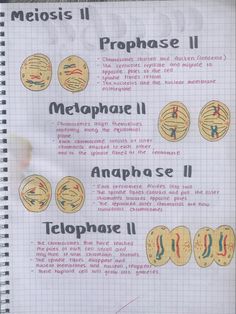 Meiosis II
Prophase II
• Chromosomes shorten and thicken (condense)
• The centrioles replicate and migrate to
opposite poles of the cell
• Spindle fibres form
• The nucleolus and the nuclear membrane
Metaphase II
• Chromosomes align themselves
along the equatorial
plane
• Each chromosome consists of sister
chromatids attached to each other
and to the spindle fibres at the centromere
Anaphase II
• Each centromere divides into two
• The spindle fibres contract and pull the sister
chromatids towards opposite poles
• The separated sister chromatids are now
individual chromosomes
Telophase II
• The chromosomes that have reached
the poles of each cell
• The spindle fibres disappear and
nuclear membranes and nucleoli reappear
• These haploid cell will grow into gametes